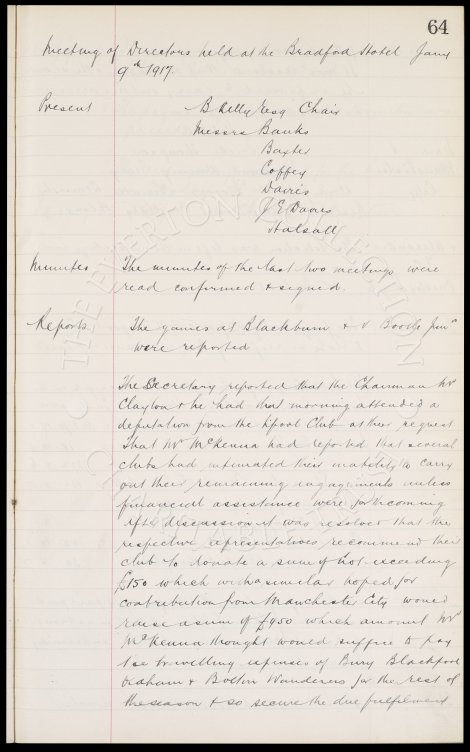 64
Meeting of Directors held at the Bradford Hotel Jany
9th 1917.
Present B Kelly Esq Chair
Messrs Banks
Baxter
Coffey
Davies
J E Davies
Halsall
Minutes The minutes of the last two meetings were
read confirmed & signed.
Reports The games at Blackburn & v Bootle Junrs
were reported
The Secretary reported that the Chairman Mr
Clayton & he had that morning attended a
deputation from the Lpool Club at their request
That Mr McKenna had reported that several
clubs had intimated their inability to carry
out their remaining engagements unless
financial assistance were forthcoming
After discussion it was resolved that the
respective representatives recommend their
club to donate a sum of not exceeding
£150 which with a similar hoped for
contribution from Manchester City would
raise a sum of £450 which amount Mr
McKenna thought would suffice to pay
the travelling expenses of Bury Blackpool
Oldham & Bolton Wanderers for the rest of
the season & so secure the due fulfilment
© THE EVERTON COLLECTION